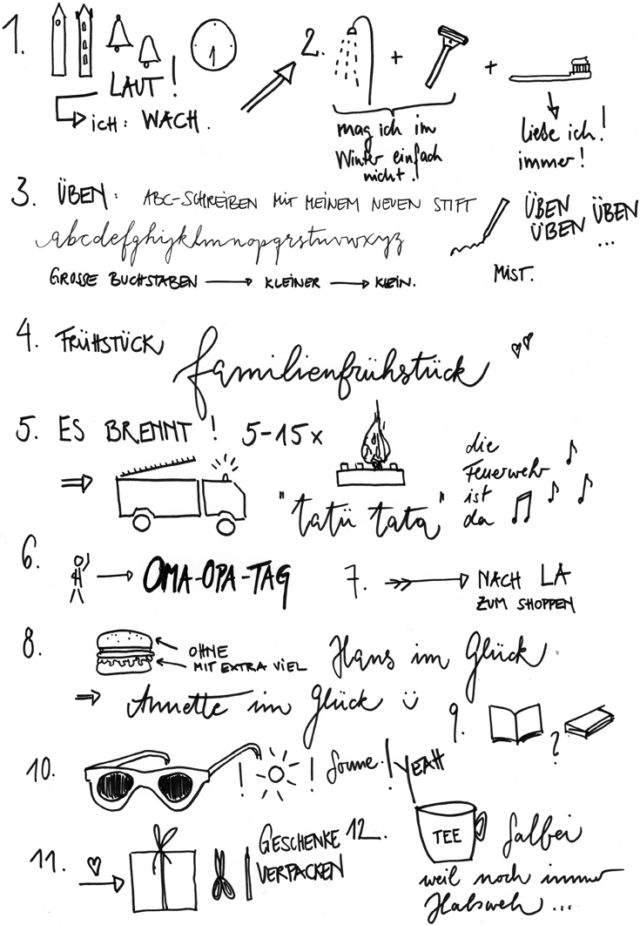 1.
1
LAUT!
ICH: WACH.
2.
+
+
mag ich im
Winter einfach
nicht.
liebe ich!
immer!
3. ÜBEN: ABC-SCHREIBEN MIT MEINEM NEUEN STIFT
abcdefghijklmnopqrstuvwxyz
GROSSE BUCHSTABEN → KLEINER → KLEIN.
ÜBEN
ÜBEN ÜBEN
...
MIST.
4. FRÜHSTÜCK
familienfrühstück
5. ES BRENNT! 5-15x
"tatü tata"
die
Feuerwehr
ist
da
6. → OMA-OPA-TAG
7. → NACH LA
ZUM SHOPPEN
8.
OHNE
MIT EXTRA VIEL
Hans im Glück
⇒ Annette im Glück ☺
9. ?
10. ! ! Sonne! YEAH
11.
GESCHENKE
VERPACKEN
12.
TEE
Salbei
weil noch immer
Halsweh...